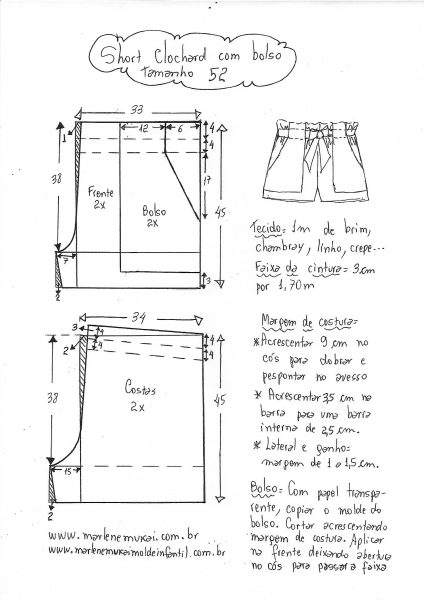 Short Clochard com bolso
tamanho 52
33
12
6
4
4
1
17
38
Frente
2x
Bolso
2x
45
7
3
2
Tecido = 1m de brim,
chambray, linho, crepe...
Faixa da cintura = 3cm
por 1,70m
34
3
4
4
4
2
Costas
2x
38
45
15
2
Margem de costura =
* Acrescentar 9 cm no
cós para dobrar e
pespontar no avesso
* Acrescentar 3,5 cm na
barra para uma barra
interna de 2,5cm.
* Lateral e ganho=
margem de 1 a 1,5cm.
Bolso = Com papel transpa-
rente, copiar o molde do
bolso. Cortar acrescentando
margem de costura. Aplicar
na frente deixando abertura
no cós para passar a faixa
www.marlenemukai.com.br
www.marlenemukaimoldeinfantil.com.br